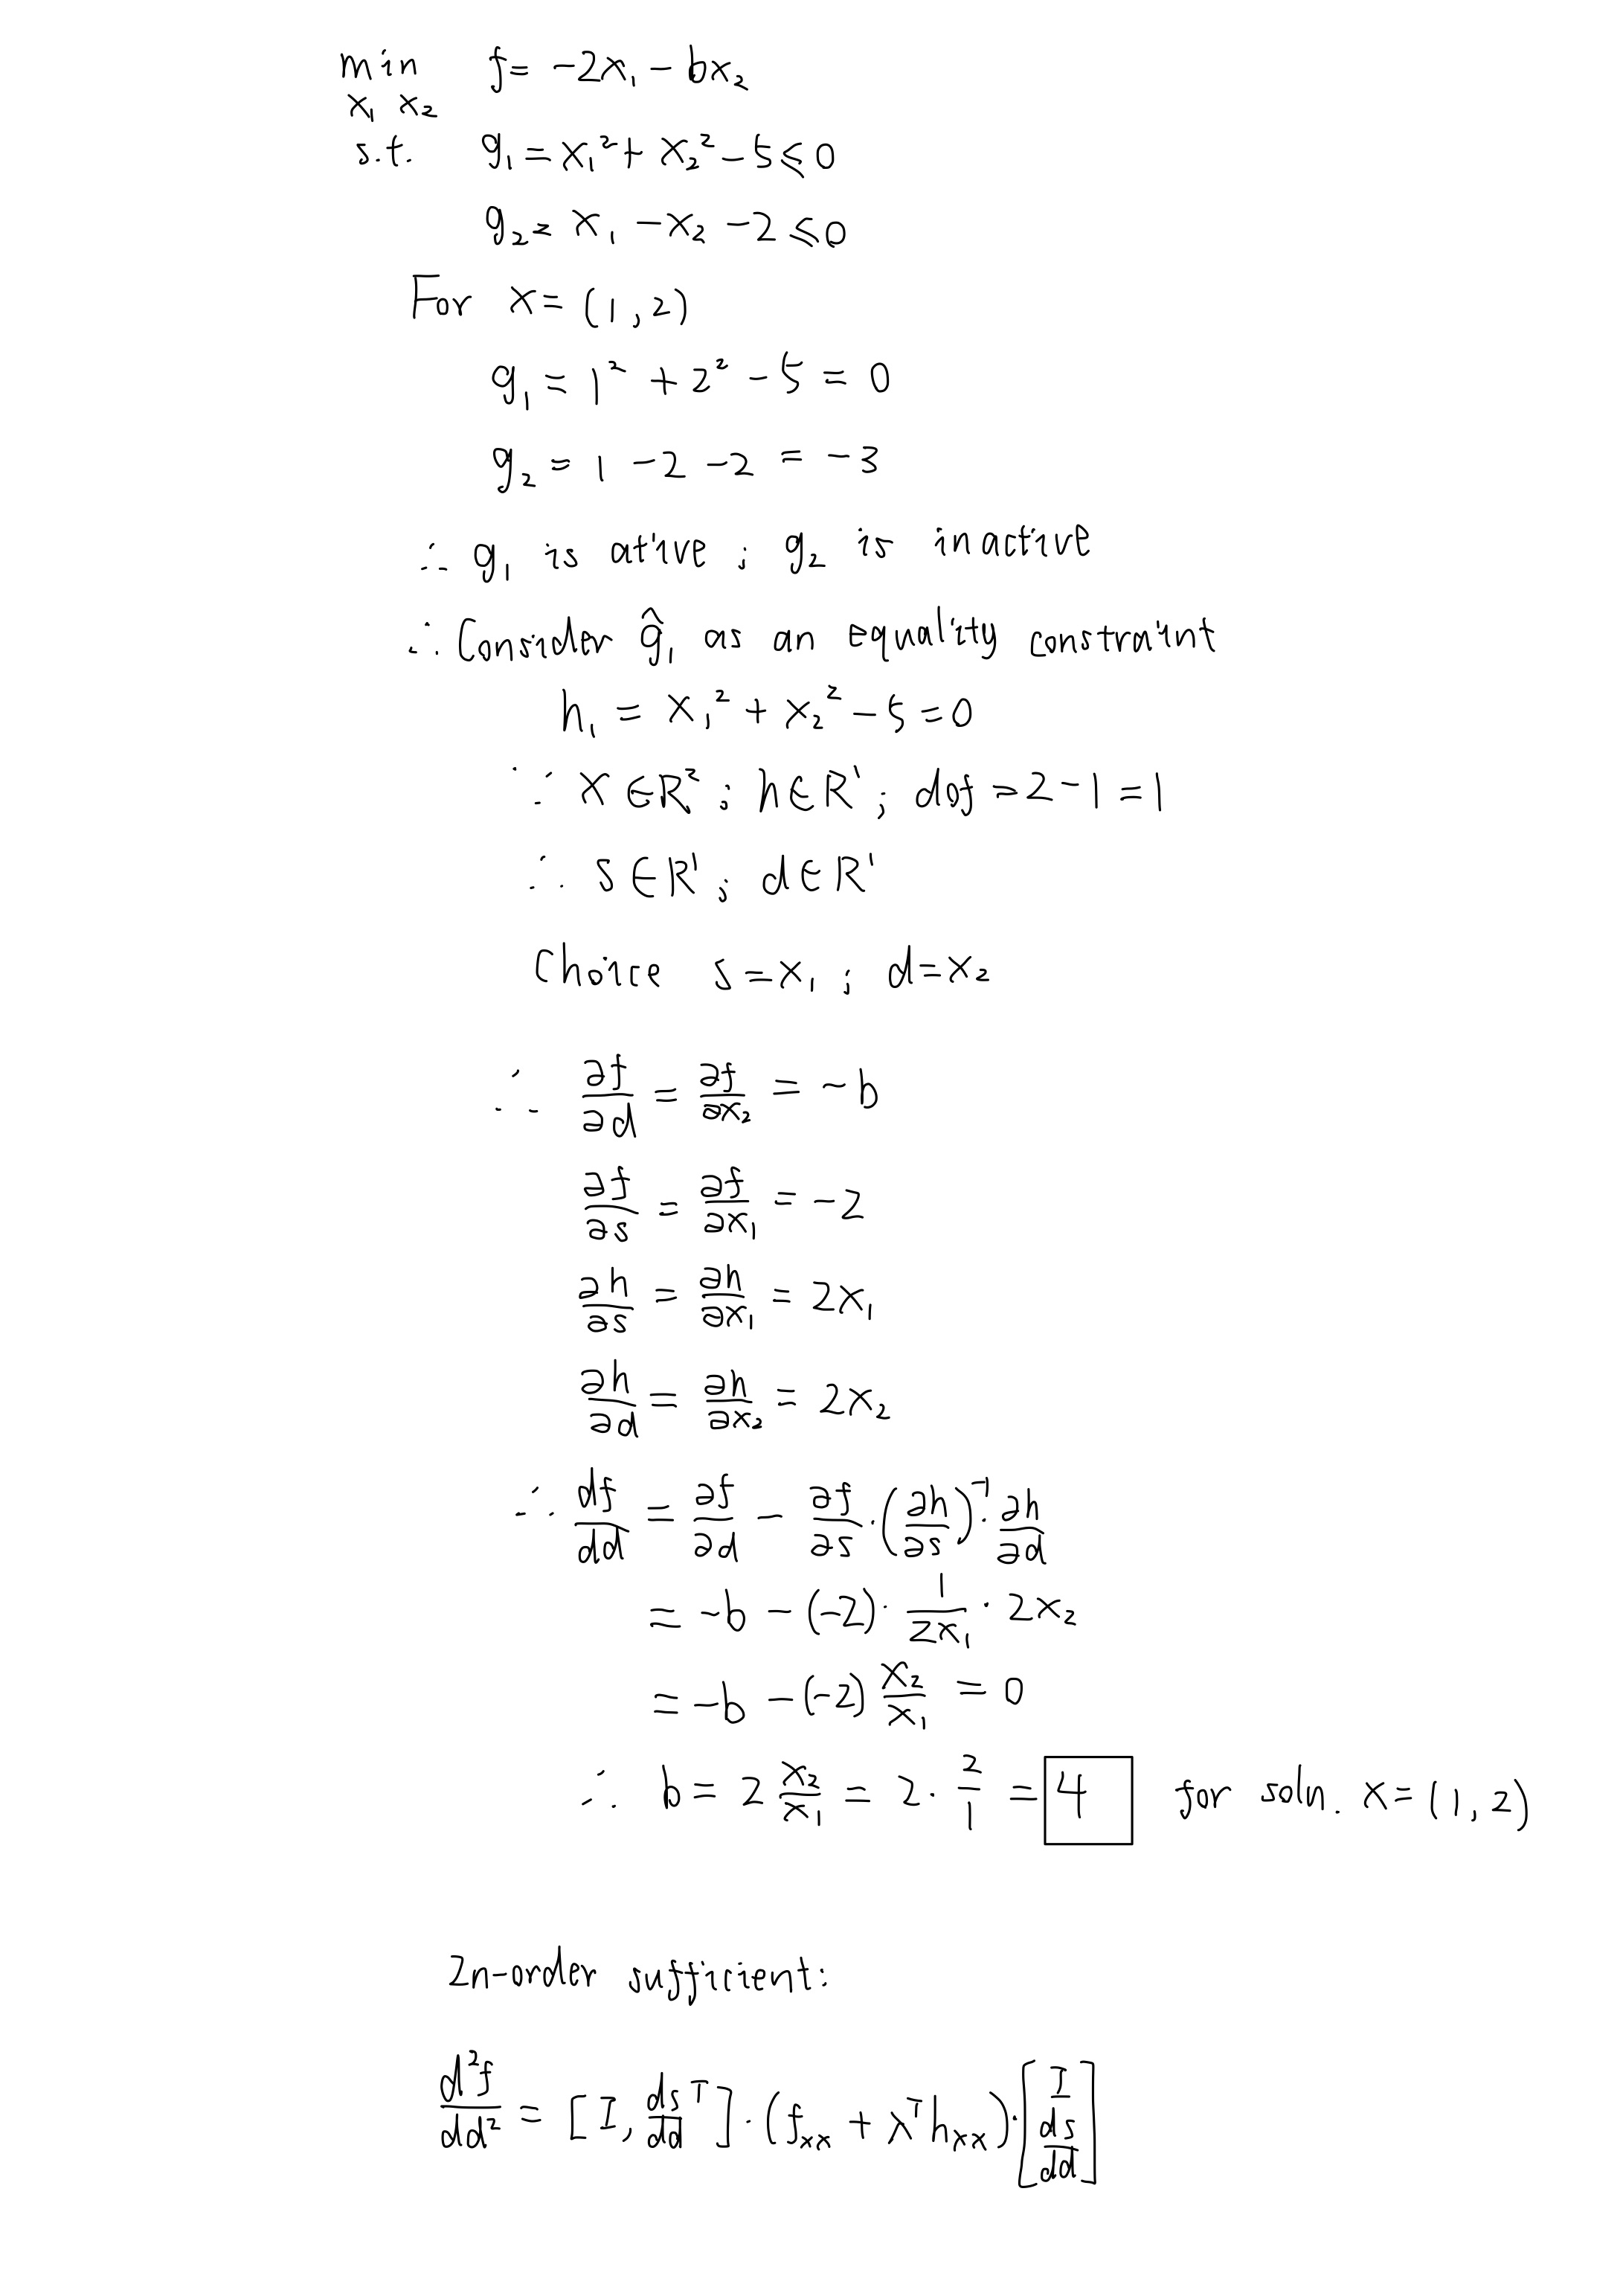 min f = -2x₁ - bx₂
x₁ x₂
s.t. g₁ = x₁² + x₂² - 5 ≤ 0
g₂ = x₁ - x₂ - 2 ≤ 0
For x = (1, 2)
g₁ = 1² + 2² - 5 = 0
g₂ = 1 - 2 - 2 = -3
∴ g₁ is ative ; g₂ is inactive
∴ Consider ĝ₁ as an equality constraint
h₁ = x₁² + x₂² - 5 = 0
∵ x ∈ R² ; h ∈ R¹ ; dof = 2 - 1 = 1
∴ s ∈ R¹ ; d ∈ R¹
Choice s = x₁ ; d = x₂
∴ ∂f/∂d = ∂f/∂x₂ = -b
∂f/∂s = ∂f/∂x₁ = -2
∂h/∂s = ∂h/∂x₁ = 2x₁
∂h/∂d = ∂h/∂x₂ = 2x₂
∴ df/dd = ∂f/∂d - ∂f/∂s · (∂h/∂s)⁻¹ · ∂h/∂d
= -b - (-2) · 1/2x₁ · 2x₂
= -b - (-2) x₂/x₁ = 0
∴ b = 2 x₂/x₁ = 2 · 2/1 = 4 for soln. x = (1, 2)
2n-order sufficient:
d²f/dd² = [I, ds/dd ᵀ] · (fₓₓ + λᵀhₓₓ) · [I ds/dd]